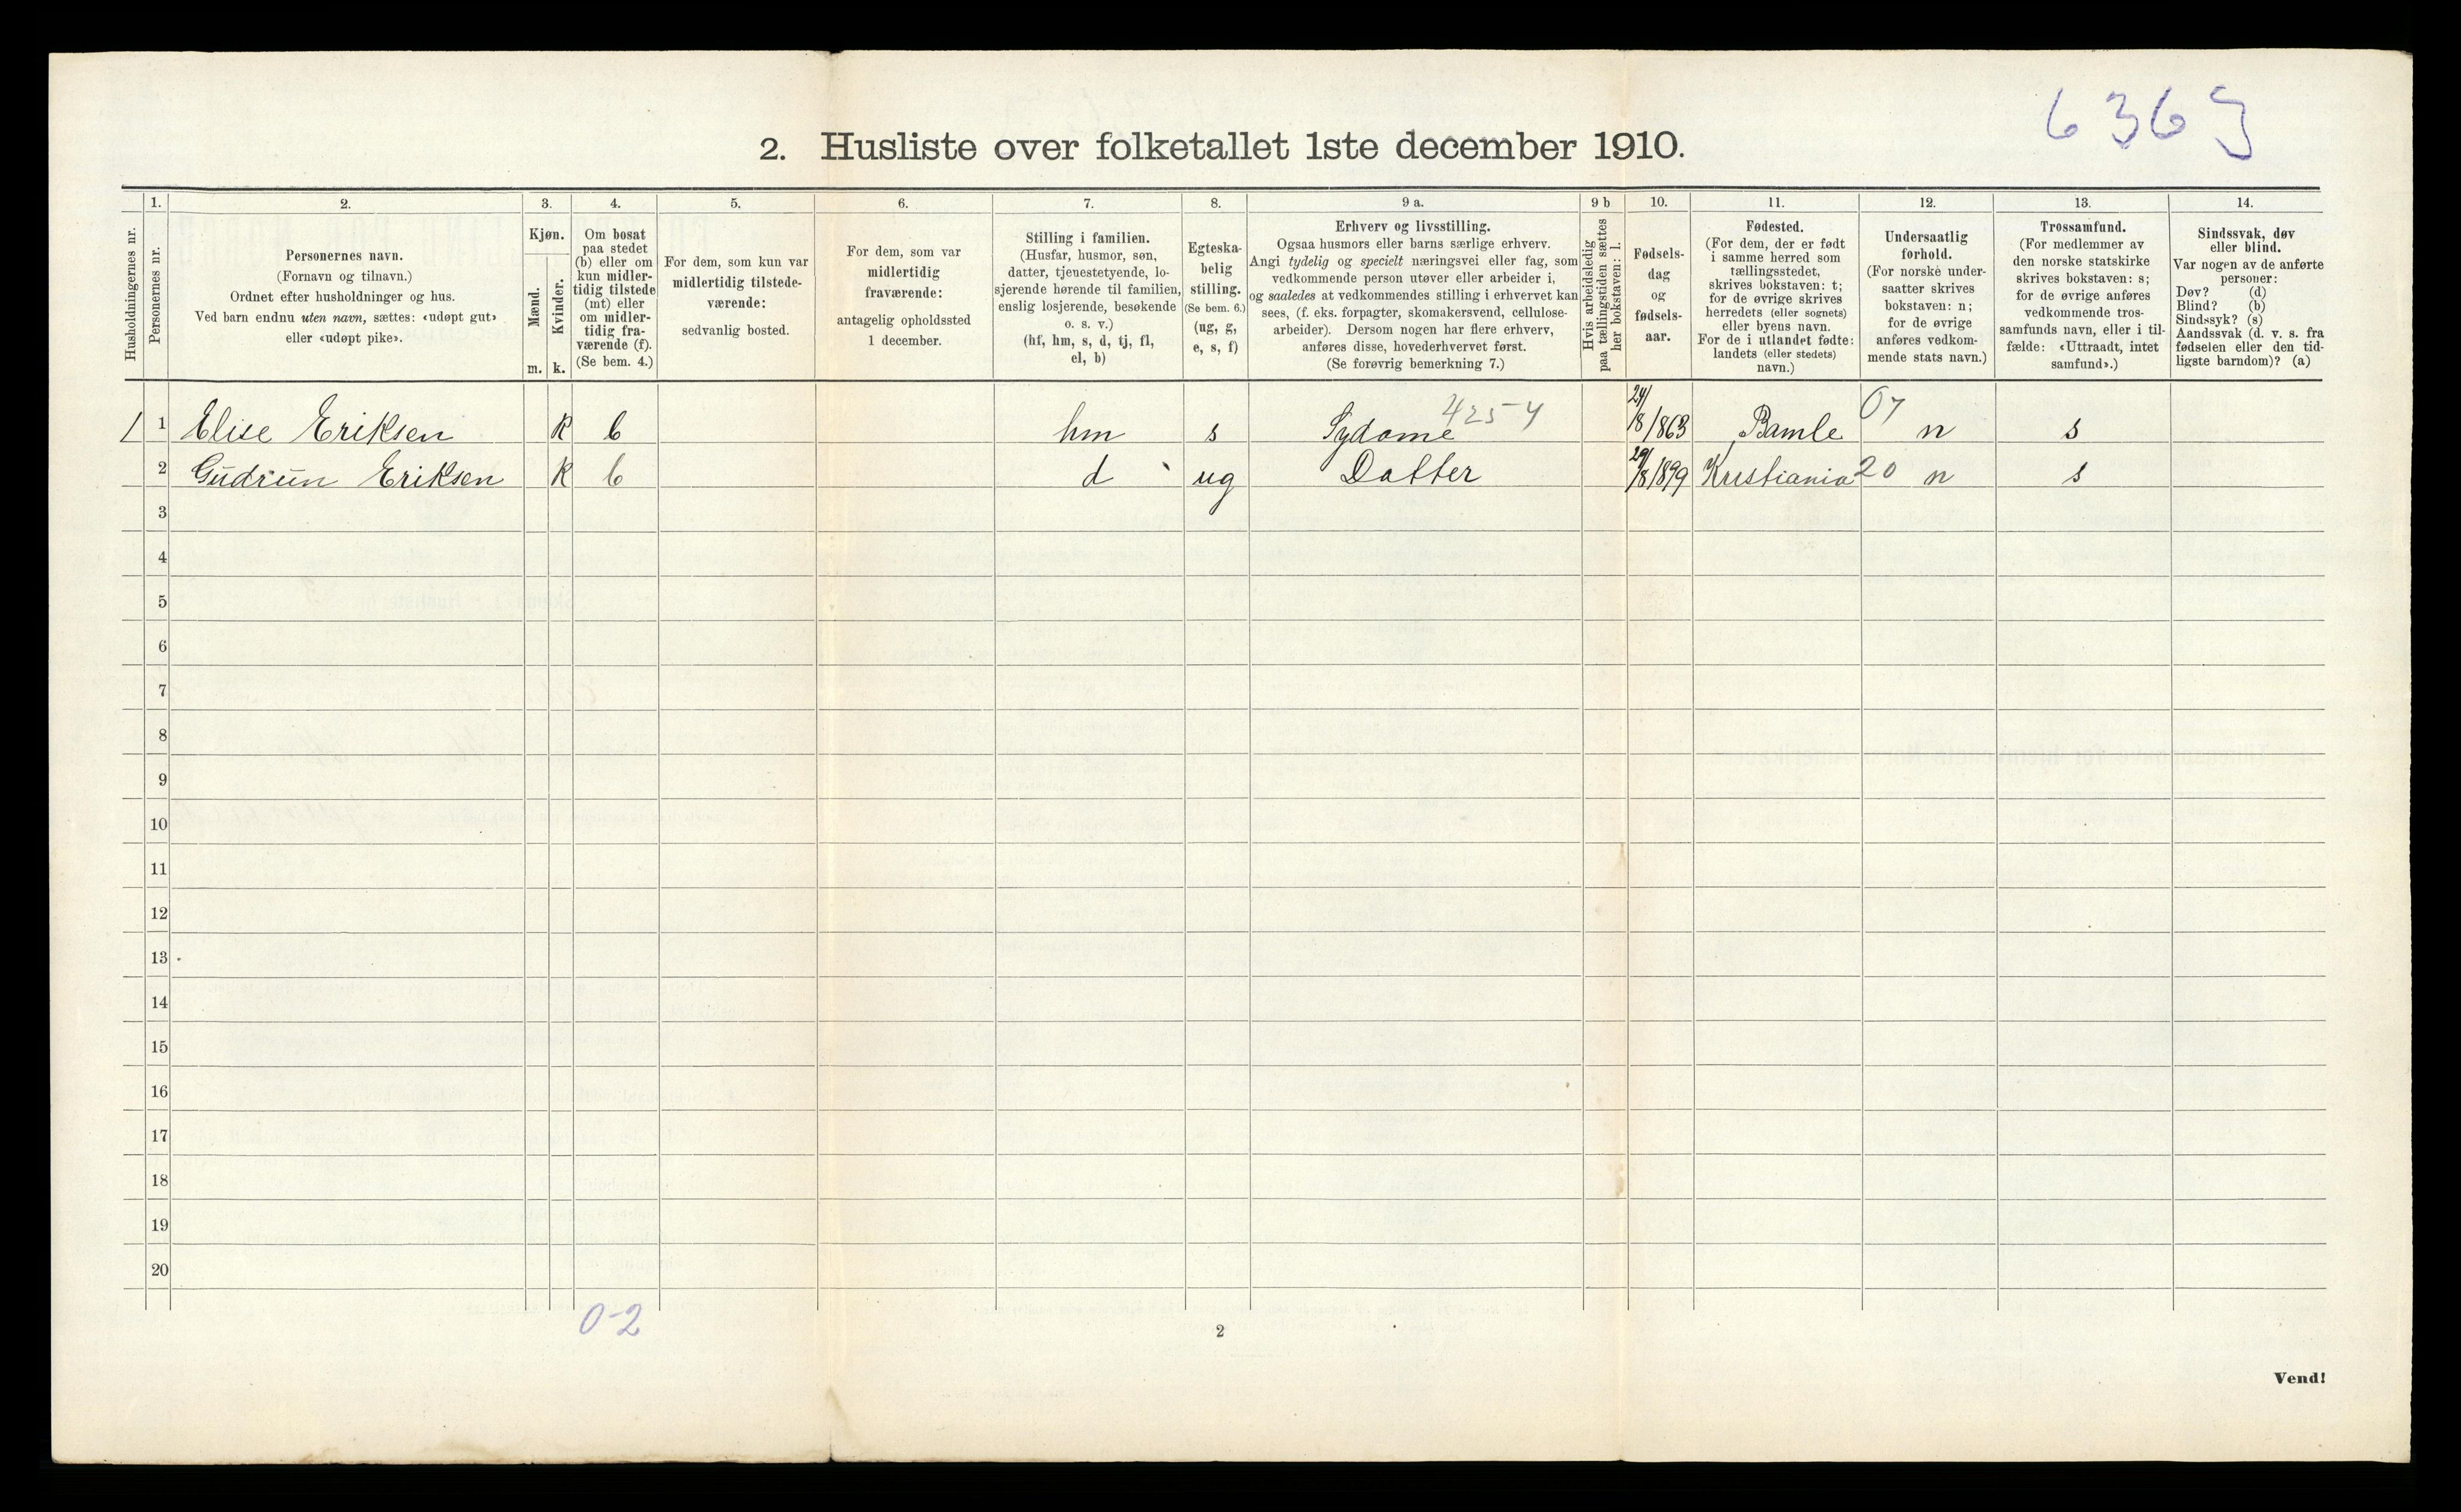 6369
2. Husliste over folketallet 1ste december 1910.
Husholdningernes nr.
1.
Personernes nr.
2.
Personernes navn.
(Fornavn og tilnavn.)
Ordnet efter husholdninger og hus.
Ved barn endnu uten navn, sættes: «udøpt gut»
eller «udøpt pike».
3.
Kjøn.
Mænd.
Kvinder.
m. k.
4.
Om bosat
paa stedet
(b) eller om
kun midler-
tidig tilstede
(mt) eller
om midler-
tidig fra-
værende (f).
(Se bem. 4.)
5.
For dem, som kun var
midlertidig tilstede-
værende:
sedvanlig bosted.
6.
For dem, som var
midlertidig
fraværende:
antagelig opholdssted
1 december.
7.
Stilling i familien.
(Husfar, husmor, søn,
datter, tjenestetyende, lo-
sjerende hørende til familien,
enslig losjerende, besøkende
o. s. v.)
(hf, hm, s, d, tj, fl,
el, b)
8.
Egteska-
belig
stilling.
(Se bem. 6.)
(ug, g,
e, s, f)
9 a.
Erhverv og livsstilling.
Ogsaa husmors eller barns særlige erhverv.
Angi tydelig og specielt næringsvei eller fag, som
vedkommende person utøver eller arbeider i,
og saaledes at vedkommendes stilling i erhvervet kan
sees, (f. eks. forpagter, skomakersvend, cellulose-
arbeider). Dersom nogen har flere erhverv,
anføres disse, hovederhvervet først.
(Se forøvrig bemerkning 7.)
9 b
Hvis arbeidsledig
paa tællingstiden sættes
her bokstaven: l.
10.
Fødsels-
dag
og
fødsels-
aar.
11.
Fødested.
(For dem, der er født
i samme herred som
tællingsstedet,
skrives bokstaven: t;
for de øvrige skrives
herredets (eller sognets)
eller byens navn.
For de i utlandet fødte:
landets (eller stedets)
navn.)
12.
Undersaatlig
forhold.
(For norske under-
saatter skrives
bokstaven: n;
for de øvrige
anføres vedkom-
mende stats navn.)
13.
Trossamfund.
(For medlemmer av
den norske statskirke
skrives bokstaven: s;
for de øvrige anføres
vedkommende tros-
samfunds navn, eller i til-
fælde: «Uttraadt, intet
samfund».)
14.
Sindssvak, døv
eller blind.
Var nogen av de anførte
personer:
Døv? (d)
Blind? (b)
Sindssyk? (s)
Aandssvak (d. v. s. fra
fødselen eller den tid-
ligste barndom)? (a)
1 1 Elise Eriksen k b hm s Sydame 425-4 24/8/1863 Bamle 07 n s
2 Gudrun Eriksen k b d ug Datter 29/8/1899 Kristiania 20 n s
3
4
5
6
7
8
9
10
11
12
13
14
15
16
17
18
19
20
0-2
2
Vend!